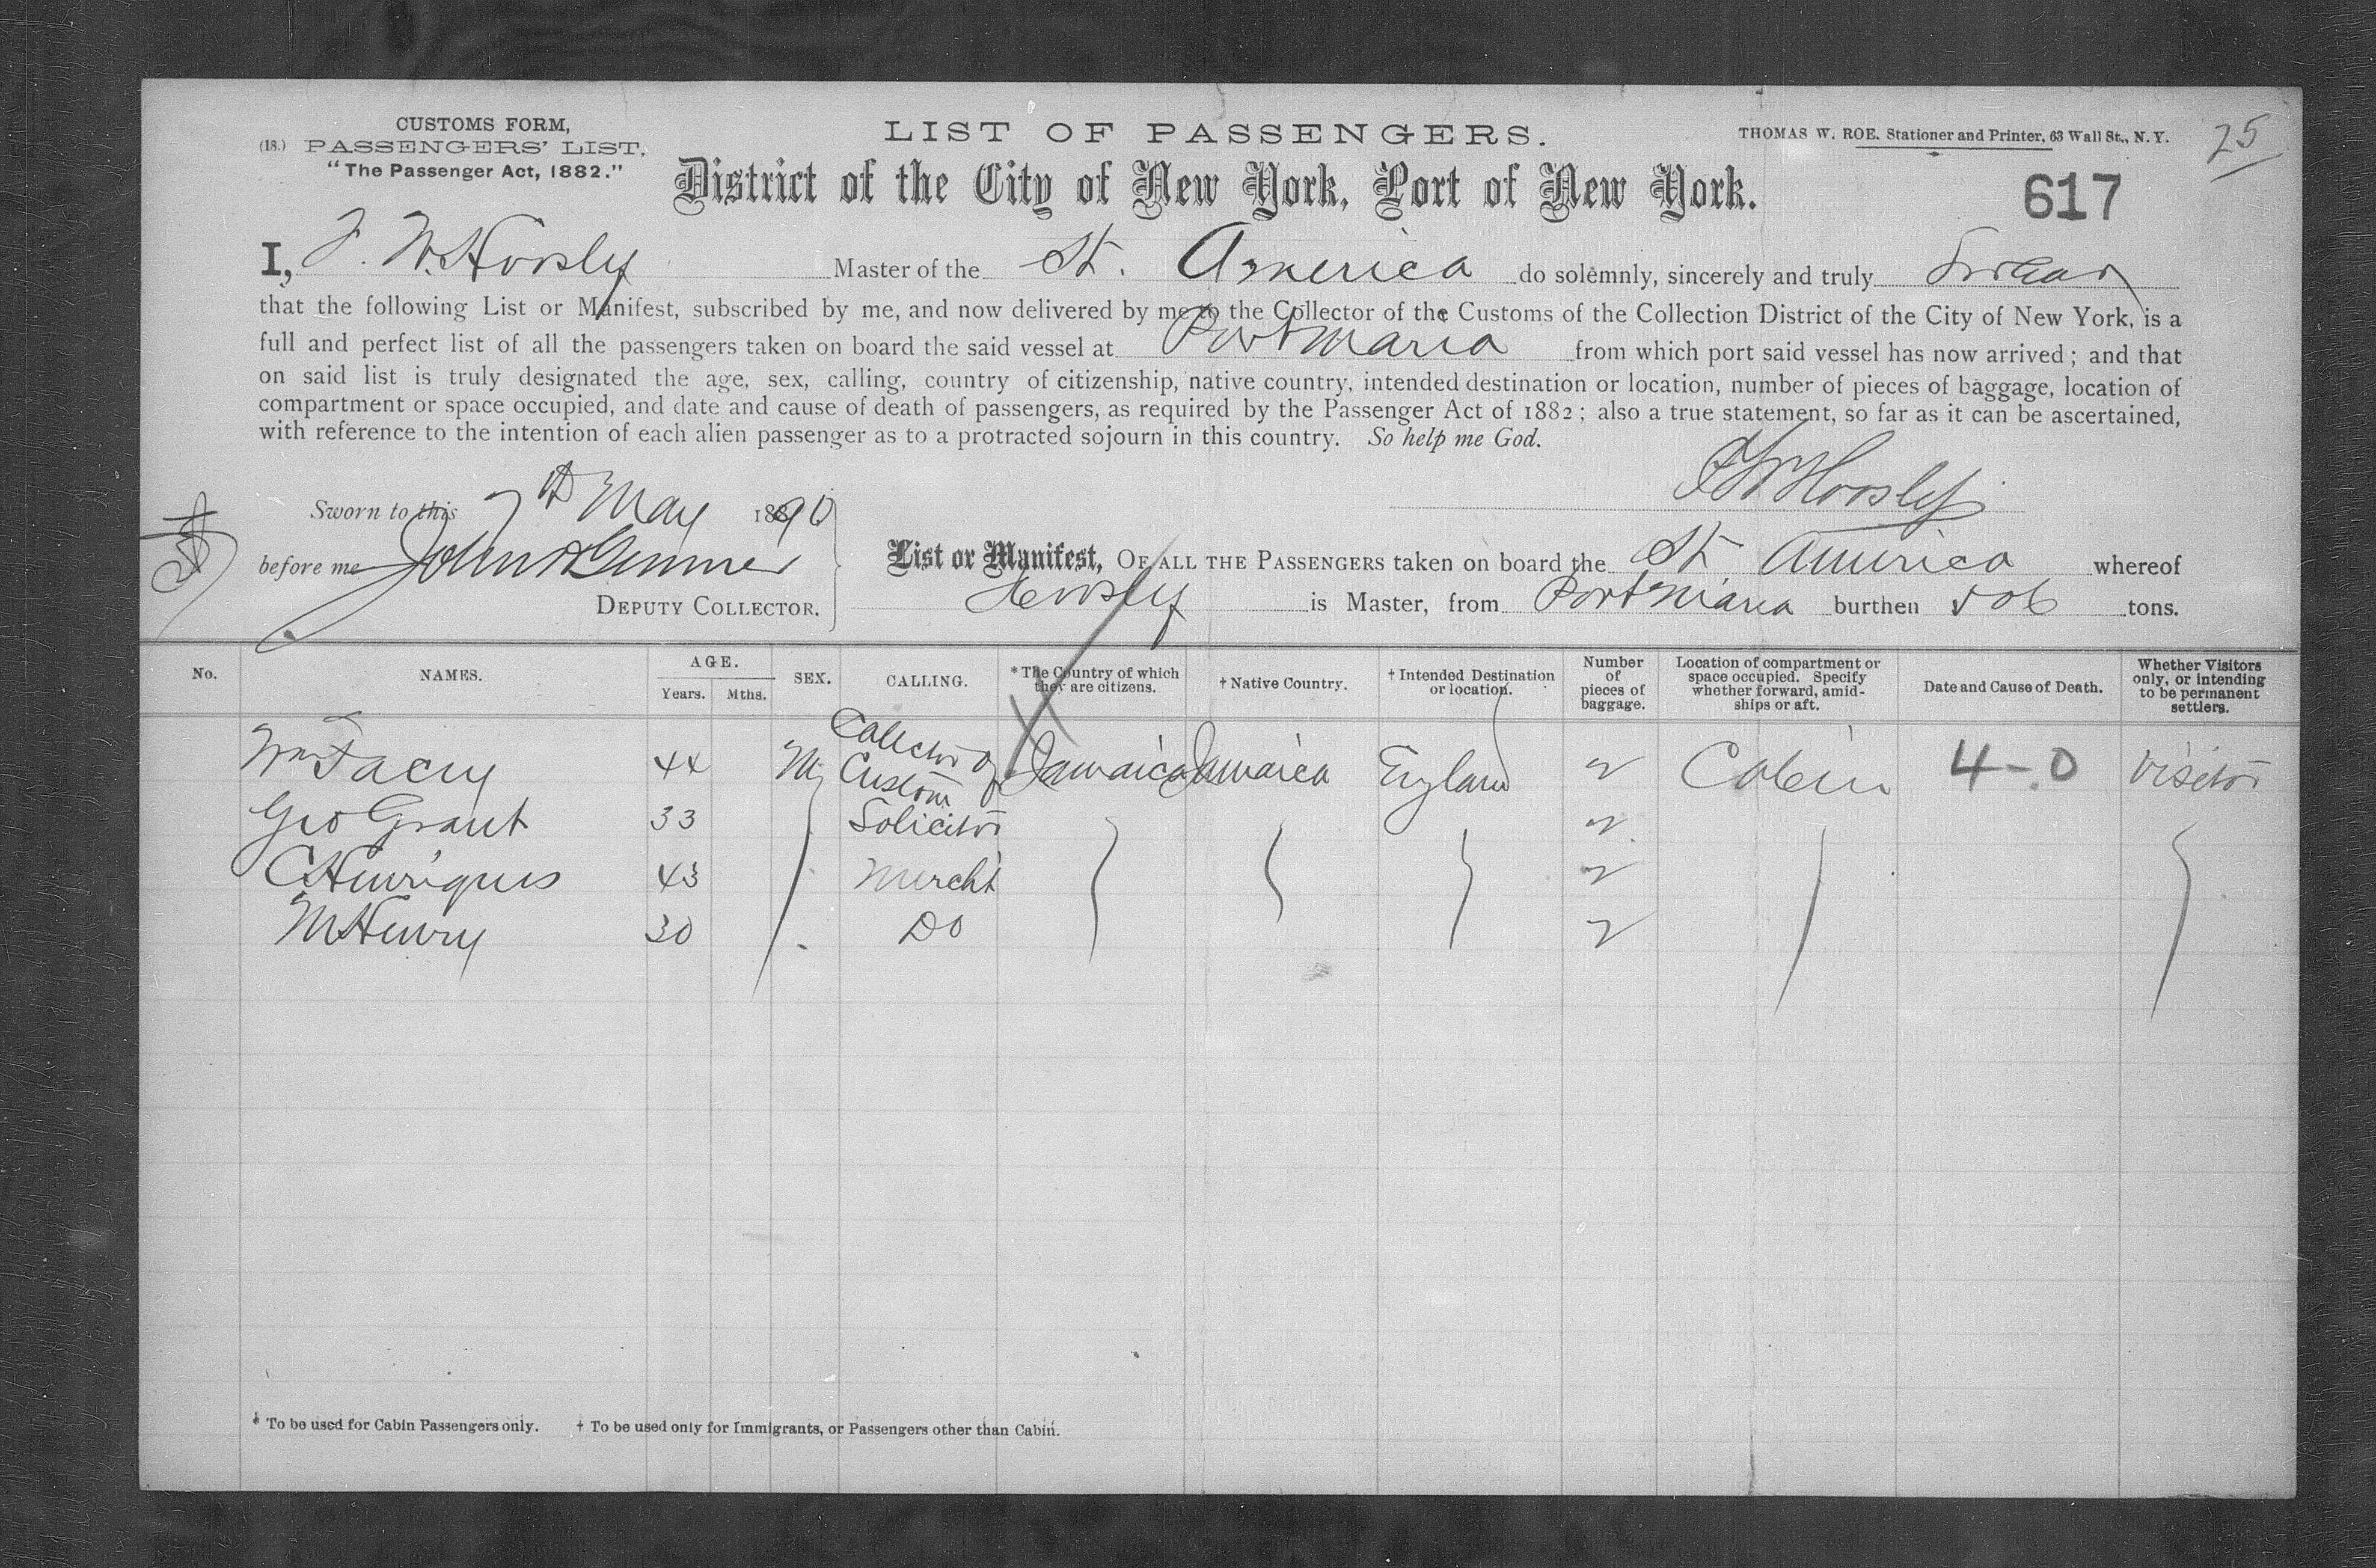 CUSTOMS FORM,
(18.) PASSENGERS' LIST,
"The Passenger Act, 1882."
LIST OF PASSENGERS.
THOMAS W. ROE. Stationer and Printer, 63 Wall St., N. Y.
25
District of the City of New York, Port of New York.
617
I, F. W. Hoosly Master of the St. America do solemnly, sincerely and truly Swear
that the following List or Manifest, subscribed by me, and now delivered by me to the Collector of the Customs of the Collection District of the City of New York, is a
full and perfect list of all the passengers taken on board the said vessel at Port Maria from which port said vessel has now arrived; and that
on said list is truly designated the age, sex, calling, country of citizenship, native country, intended destination or location, number of pieces of baggage, location of
compartment or space occupied, and date and cause of death of passengers, as required by the Passenger Act of 1882; also a true statement, so far as it can be ascertained,
with reference to the intention of each alien passenger as to a protracted sojourn in this country. So help me God.
F W Hoosly
Sworn to this 7th May 1890
before me John
DEPUTY COLLECTOR.
List or Manifest, OF ALL THE PASSENGERS taken on board the St America whereof
Hoosly is Master, from Port Maria burthen 506 tons.
No. NAMES. AGE. Years. Mths. SEX. CALLING. * The Country of which they are citizens. † Native Country. † Intended Destination or location. Number of pieces of baggage. Location of compartment or space occupied. Specify whether forward, amidships or aft. Date and Cause of Death. Whether Visitors only, or intending to be permanent settlers.
Wm Facey 44 M Collector of Custom Jamaica Jamaica England 2 Cabin 4-0 Visitor
Geo Grant 33 Solicitor 2
C Henriques 43 Mercht 2
M Henry 30 Do 2
* To be used for Cabin Passengers only. † To be used only for Immigrants, or Passengers other than Cabin.